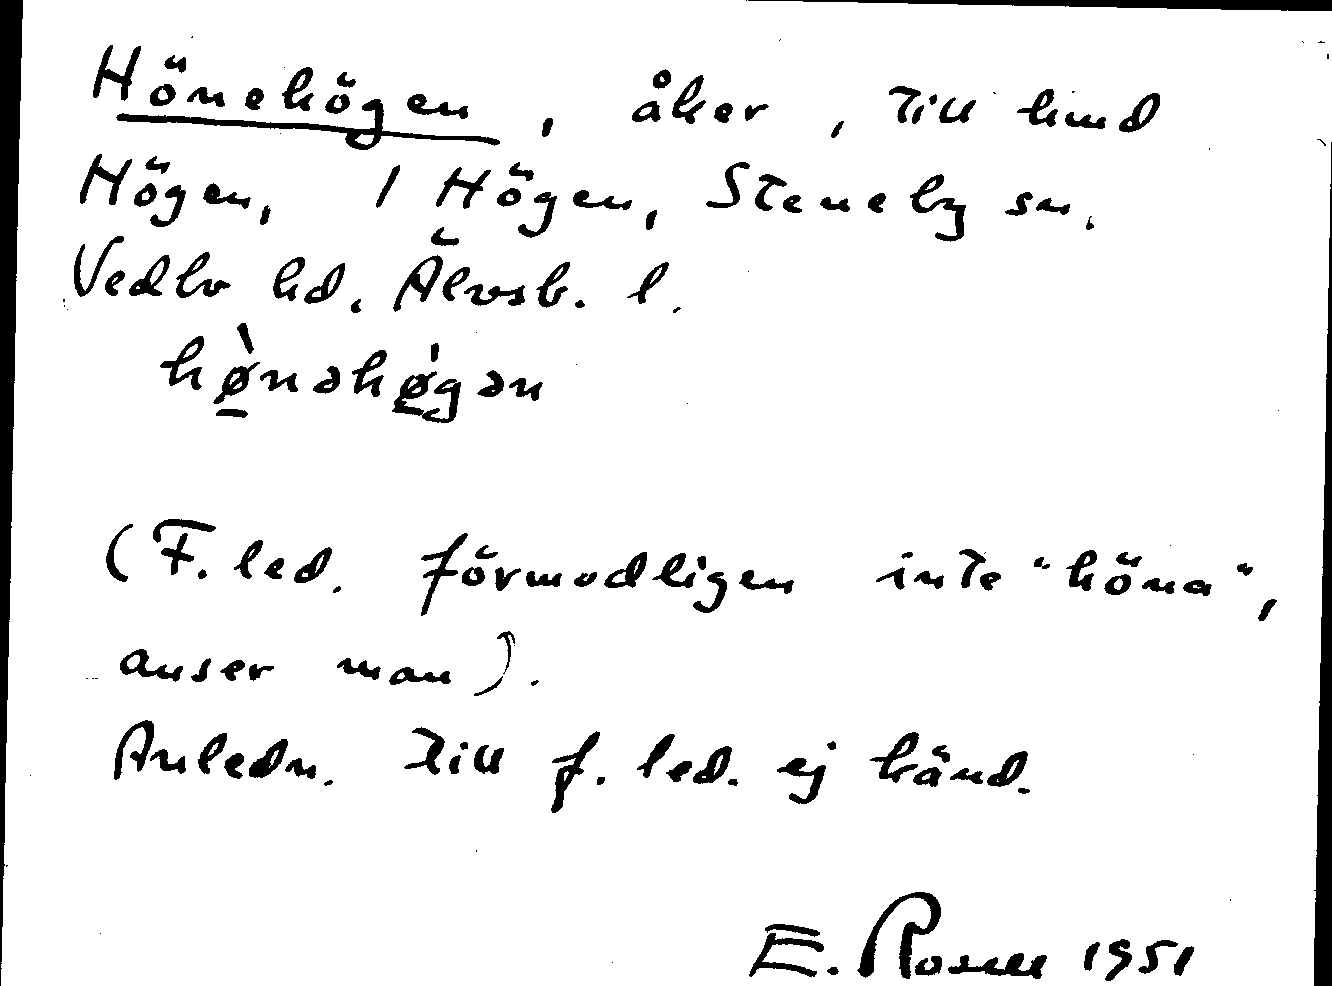 Hönehögen, åker, till hmd
Högen, 1 Högen, Steneby sn.
Vedbo hd. Älvsb. l.
hø̀nəhø̍gən
(F. led. förmodligen inte "höna",
anser man).
Anledn. till f. led. ej känd.
E. Rosell 1951